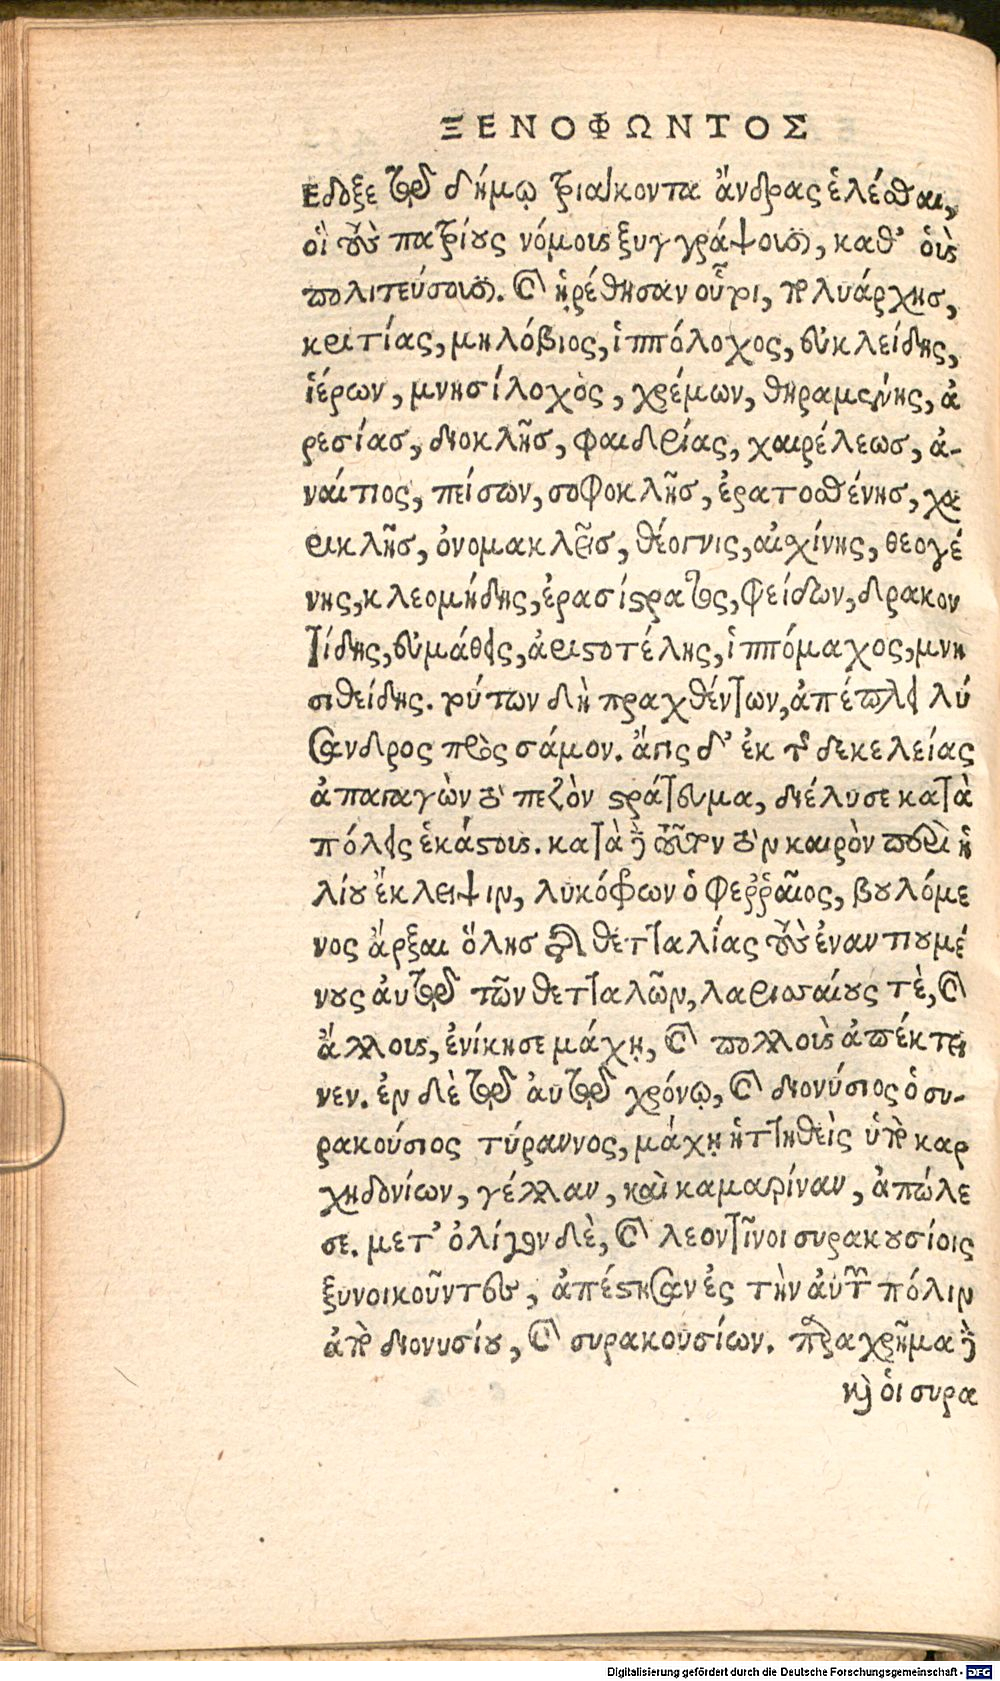 ΞΕΝΟΦΩΝΤΟΣ
Εδοξε τῷ δήμῳ τριάκοντα ἄνδρας ἑλέσθαι,
οἳ τοὺς πατρίους νόμοις ξυγγράψουσι, καθ’ οἷς
πολιτεύσουσι. καὶ ᾑρέθησαν οὗτοι, πολυάρχης,
κριτίας, μηλόβιος, ἱππόλοχος, εὐκλείδης,
ἱέρων, μνησίλοχὸς, χρέμων, θηραμένης, ἀ
ρεσίας, διοκλῆς, φαιδρίας, χαιρέλεως, ἀ-
ναίτιος, πείσων, σοφοκλῆς, ἐρατοσθένης, χα
ρικλῆς, ὀνομακλῆς, θέογνις, αἰσχίνης, θεογέ
νης, κλεομήδης, ἐρασίστρατος, φείδων, δρακον
τίδης, εὐμάθης, ἀριστοτέλης, ἱππόμαχος, μνη
σιθείδης. τούτων δὴ πραχθέντων, ἀπέπλει λύ
σανδρος πρὸς σάμον. ἄγις δ’ ἐκ τῆς δεκελείας
ἀπαγαγὼν τὸ πεζὸν στράτευμα, διέλυσε κατὰ
πόλεις ἑκάστους. κατὰ δὲ τοῦτον τὸν καιρὸν περὶ ἡ
λίου ἔκλειψιν, λυκόφρων ὁ φερραῖος, βουλόμε
νος ἄρξαι ὅλης τῆς θετταλίας τοὺς ἐναντιουμέ
νους ἀυτῷ τῶν θετταλῶν, λαρισσαίους τὲ, καὶ
ἄλλους, ἐνίκησε μάχῃ, καὶ πολλοὺς ἀπέκτει
νεν. ἐν δὲ τῷ ἀυτῷ χρόνῳ, καὶ διονύσιος ὁ συ-
ρακούσιος τύραννος, μάχῃ ἡττηθεὶς ὑπὸ καρ
χηδονίων, γέλλαν, καὶ καμαρίναν, ἀπώλε
σε. μετ’ ὀλίγον δὲ, καὶ λεοντῖνοι συρακουσίοις
ξυνοικοῦντες, ἀπέστησαν ἐς τὴν ἀυτῶν πόλιν
ἀπὸ διονυσίου, καὶ συρακουσίων. παραχρῆμα δὲ
καὶ ὁι συρα
Digitalisierung gefördert durch die Deutsche Forschungsgemeinschaft - DFG